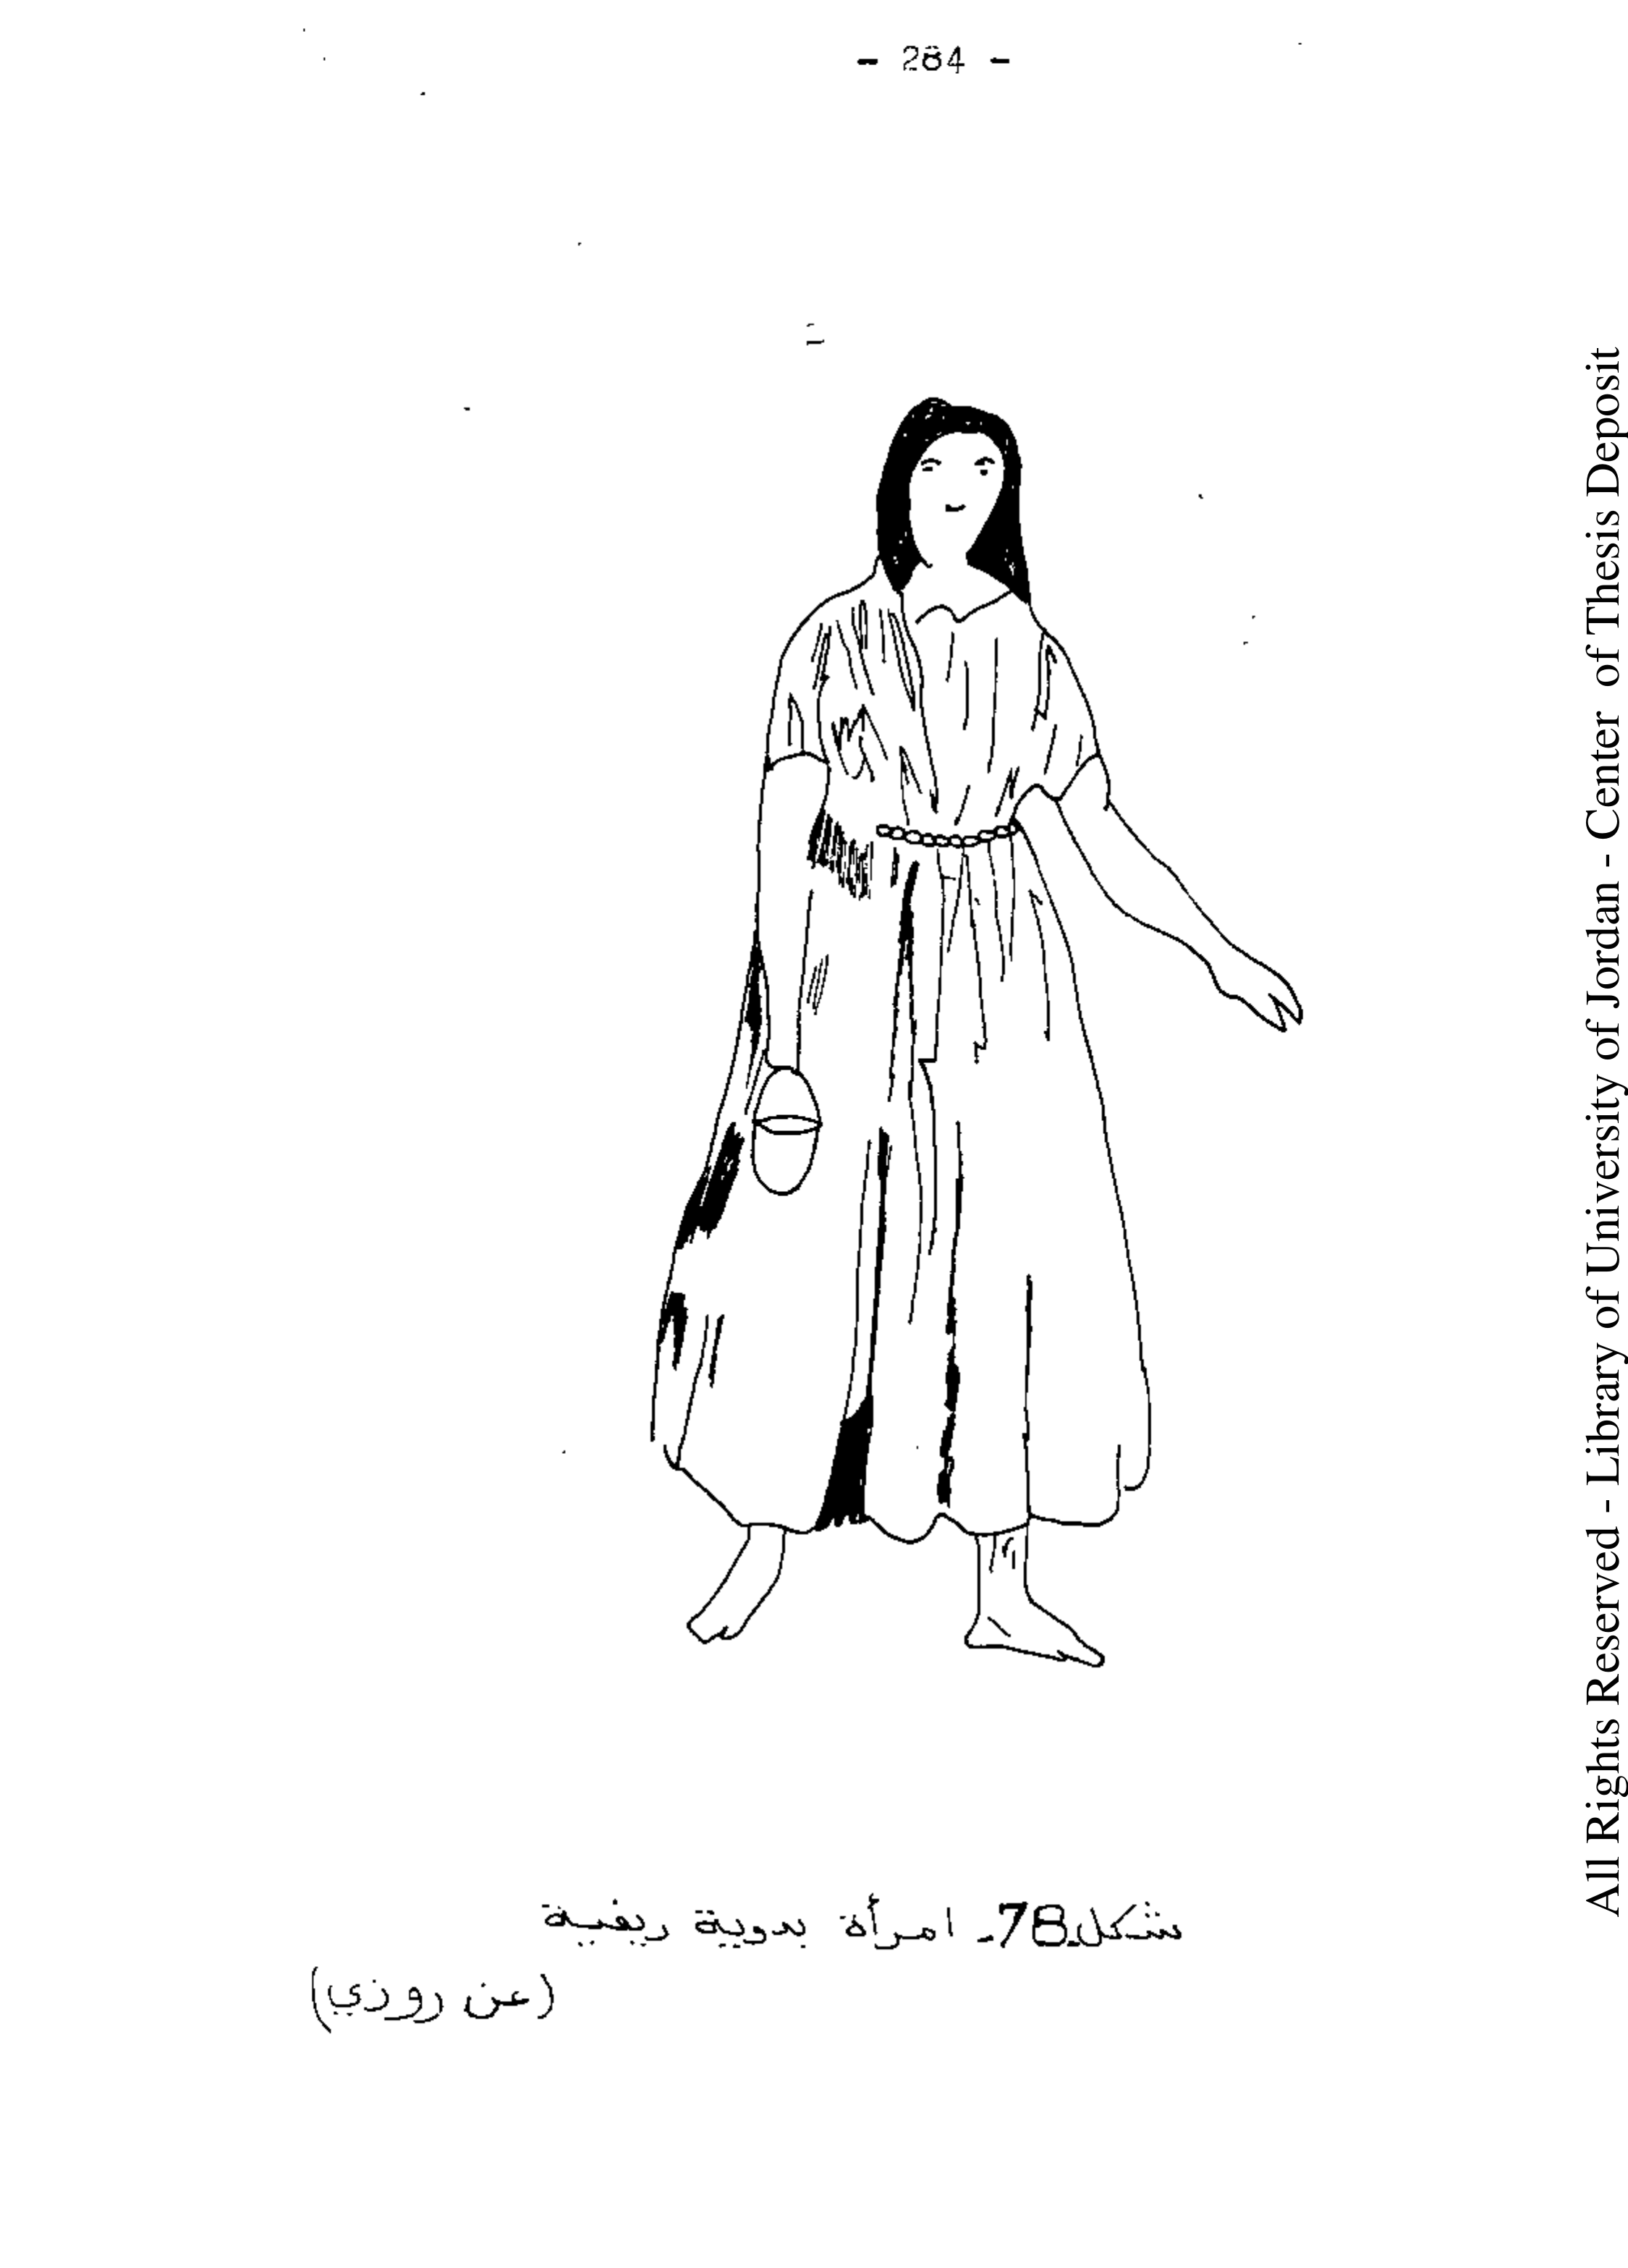 - 284 -
شكل-78- امرأة بدوية ريفية
(عن روزي)
All Rights Reserved - Library of University of Jordan - Center of Thesis Deposit